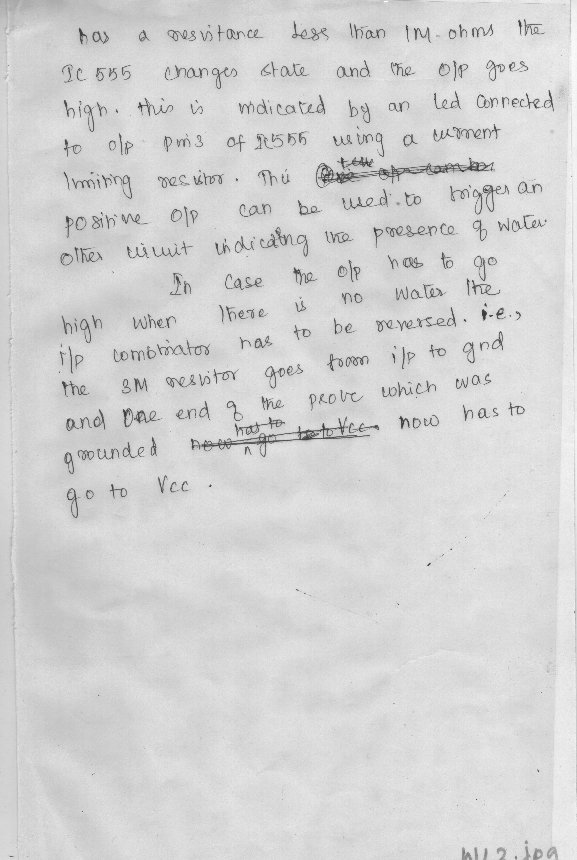 has a resistance less than 1M-ohms the
IC 555 changes state and the o/p goes
high. this is indicated by an led connected
to o/p pins of IC555 using a current
limiting resistor. This
positive o/p can be used to trigger an
other circuit indicating the presence of water
In case the o/p has to go
high when there is no water the
i/p combinator has to be reversed. i.e.,
the 3M resistor goes from i/p to gnd
and one end of the probe which was
grounded now has to
go to Vcc.
W12.jpg